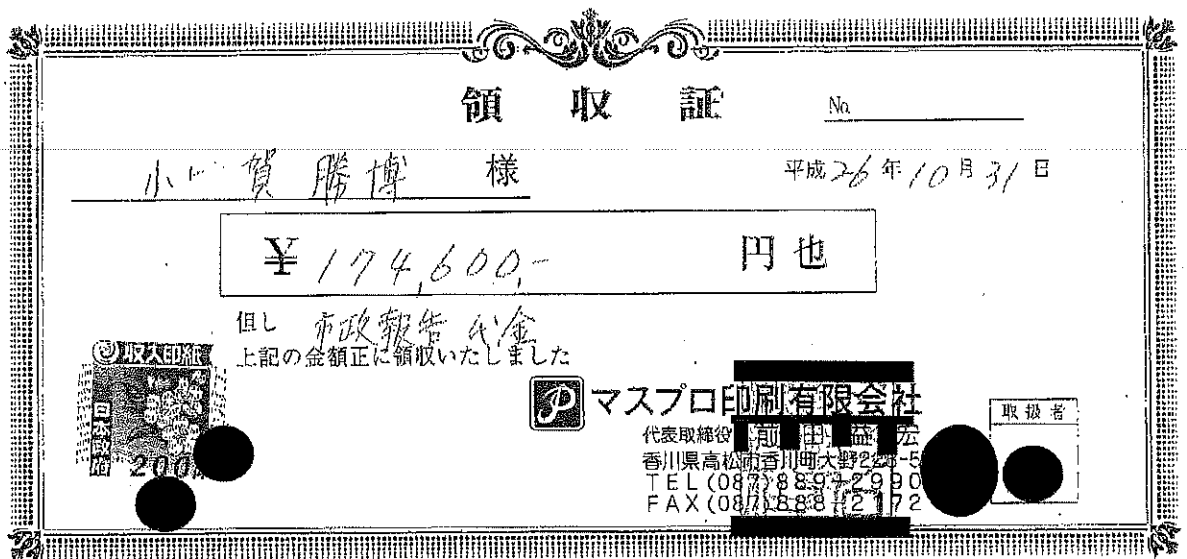 領収証
No.
小比賀 勝博 様
平成26年10月31日
¥174,600,- 円也
但し 市政報告 代金
上記の金額正に領収いたしました
収入印紙
日本政府
200円
マスプロ印刷有限会社
代表取締役 前田益宏
香川県高松市香川町大野228-5
TEL(087)889-2990
FAX(087)888-2172
取扱者